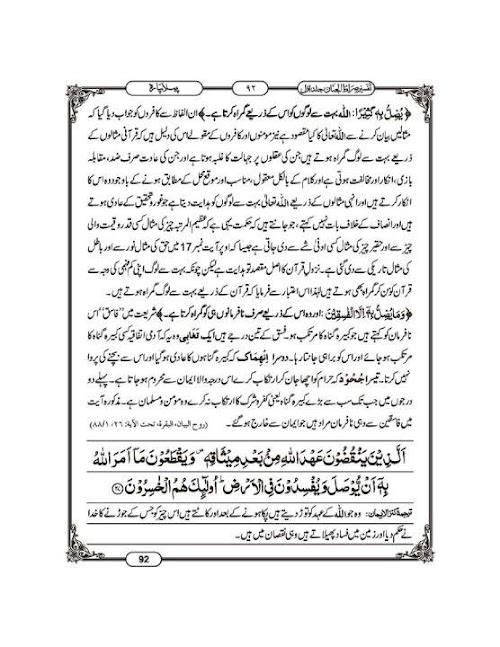 تفسیر صراط الجنان جلد اول
۹۲
پہلا پارہ ۱
﴿یُضِلُّ بِهٖ كَثِیْرًا: اللہ بہت سے لوگوں کو اس کے ذریعے گمراہ کرتا ہے۔﴾ ان الفاظ سے کافروں کو جواب دیا گیا کہ
مثالیں بیان کرنے سے اللہ تعالیٰ کا کیا مقصود ہے نیز مومنوں اور کافروں کے مقولے اس کی دلیل ہیں کہ قرآنی مثالوں کے
ذریعے بہت سے لوگ گمراہ ہوتے ہیں جن کی عقلوں پر جہالت کا غلبہ ہوتا ہے اور جن کی عادت صرف ضد، مقابلہ
بازی، انکار اور مخالفت ہوتی ہے اور کلام کے بالکل معقول، مناسب اور موقع محل کے مطابق ہونے کے باوجود وہ اس کا
انکار کرتے ہیں اور انہی مثالوں کے ذریعے اللہ تعالیٰ بہت سے لوگوں کو ہدایت دیتا ہے جو غور و تحقیق کے عادی ہوتے
ہیں اور انصاف کے خلاف بات نہیں کہتے، جو جانتے ہیں کہ حکمت یہی ہے کہ عظیم المرتبہ چیز کی مثال کسی قدر و قیمت والی
چیز سے اور حقیر چیز کی مثال کسی ادنیٰ شے سے دی جاتی ہے جیسا کہ اوپر آیت نمبر 17 میں حق کی مثال نور سے اور باطل
کی مثال تاریکی سے دی گئی ہے۔ نزولِ قرآن کا اصل مقصد تو ہدایت ہے لیکن چونکہ بہت سے لوگ اپنی کم فہمی کی وجہ سے
قرآن کو سن کر گمراہ بھی ہوتے ہیں لہٰذا اس اعتبار سے فرمایا کہ قرآن کے ذریعے بہت سے لوگ گمراہ ہوتے ہیں۔
﴿وَمَا یُضِلُّ بِهٖۤ اِلَّا الْفٰسِقِیْنَ: اور وہ اس کے ذریعے صرف نافرمانوں ہی کو گمراہ کرتا ہے۔﴾ شریعت میں "فاسق" اس
نافرمان کو کہتے ہیں جو کبیرہ گناہ کا مرتکب ہو۔ فسق کے تین درجے ہیں ایک تَغَابِی وہ یہ کہ آدمی اتفاقیہ کسی کبیرہ گناہ کا
مرتکب ہو جائے اور اس کو برا ہی جانتا رہا۔ دوسرا اِنْهِمَاک کہ کبیرہ گناہوں کا عادی ہو گیا اور اس سے بچنے کی پروا
نہیں کرتا۔ تیسرا جُحُوْد کہ حرام کو اچھا جان کر ارتکاب کرے اس درجہ والا ایمان سے محروم ہو جاتا ہے۔ پہلے دو
درجوں میں جب تک سب سے بڑے کبیرہ گناہ یعنی کفر و شرک کا ارتکاب نہ کرے وہ مومن و مسلمان ہے۔ مذکورہ آیت
میں فاسقین سے وہی نافرمان مراد ہیں جو ایمان سے خارج ہو گئے۔ (روح البیان، البقرة، تحت الآیة: ۲۶، ۸۸/۱)
الَّذِیْنَ یَنْقُضُوْنَ عَهْدَ اللّٰهِ مِنْۢ بَعْدِ مِیْثَاقِهٖ۪ وَ یَقْطَعُوْنَ مَاۤ اَمَرَ اللّٰهُ
بِهٖۤ اَنْ یُّوْصَلَ وَ یُفْسِدُوْنَ فِی الْاَرْضِؕ اُولٰٓىٕكَ هُمُ الْخٰسِرُوْنَ ﴿۲۷﴾
ترجمۂ کنزالایمان: وہ جو اللہ کے عہد کو توڑ دیتے ہیں پکا ہونے کے بعد اور کاٹتے ہیں اس چیز کو جس کے جوڑنے کا خدا
نے حکم دیا اور زمین میں فساد پھیلاتے ہیں وہی نقصان میں ہیں۔
92